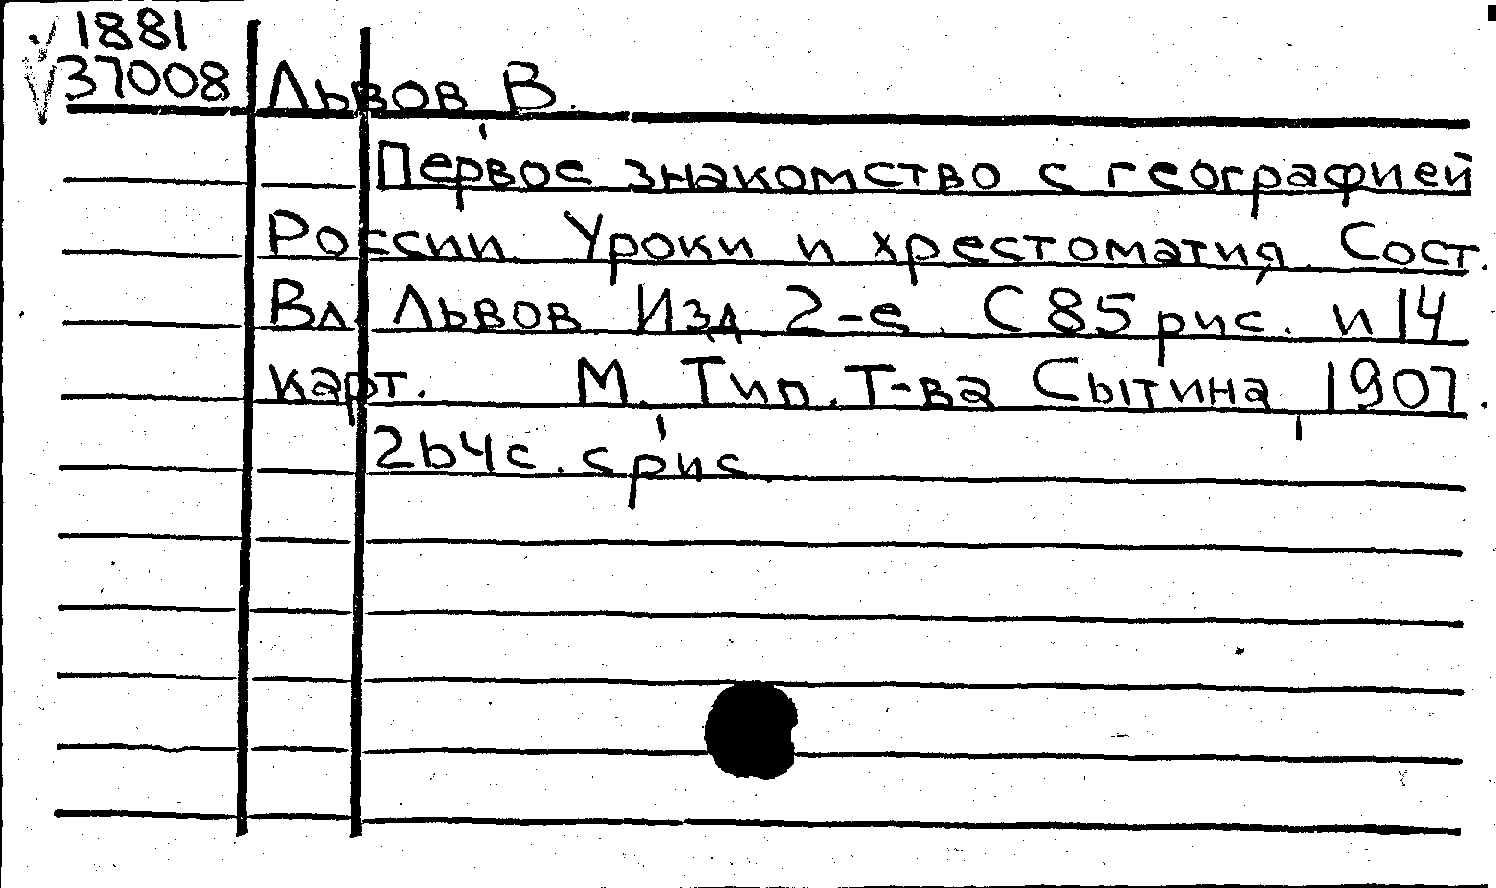 1881
37008 Львов В.
Первое знакомство с географией
России. Уроки и хрестоматия. Сост.
Вл. Львов. Изд. 2-е. С 85 рис. и 14
карт. М. Тип. Т-ва Сытина 1907.
264 с. с рис